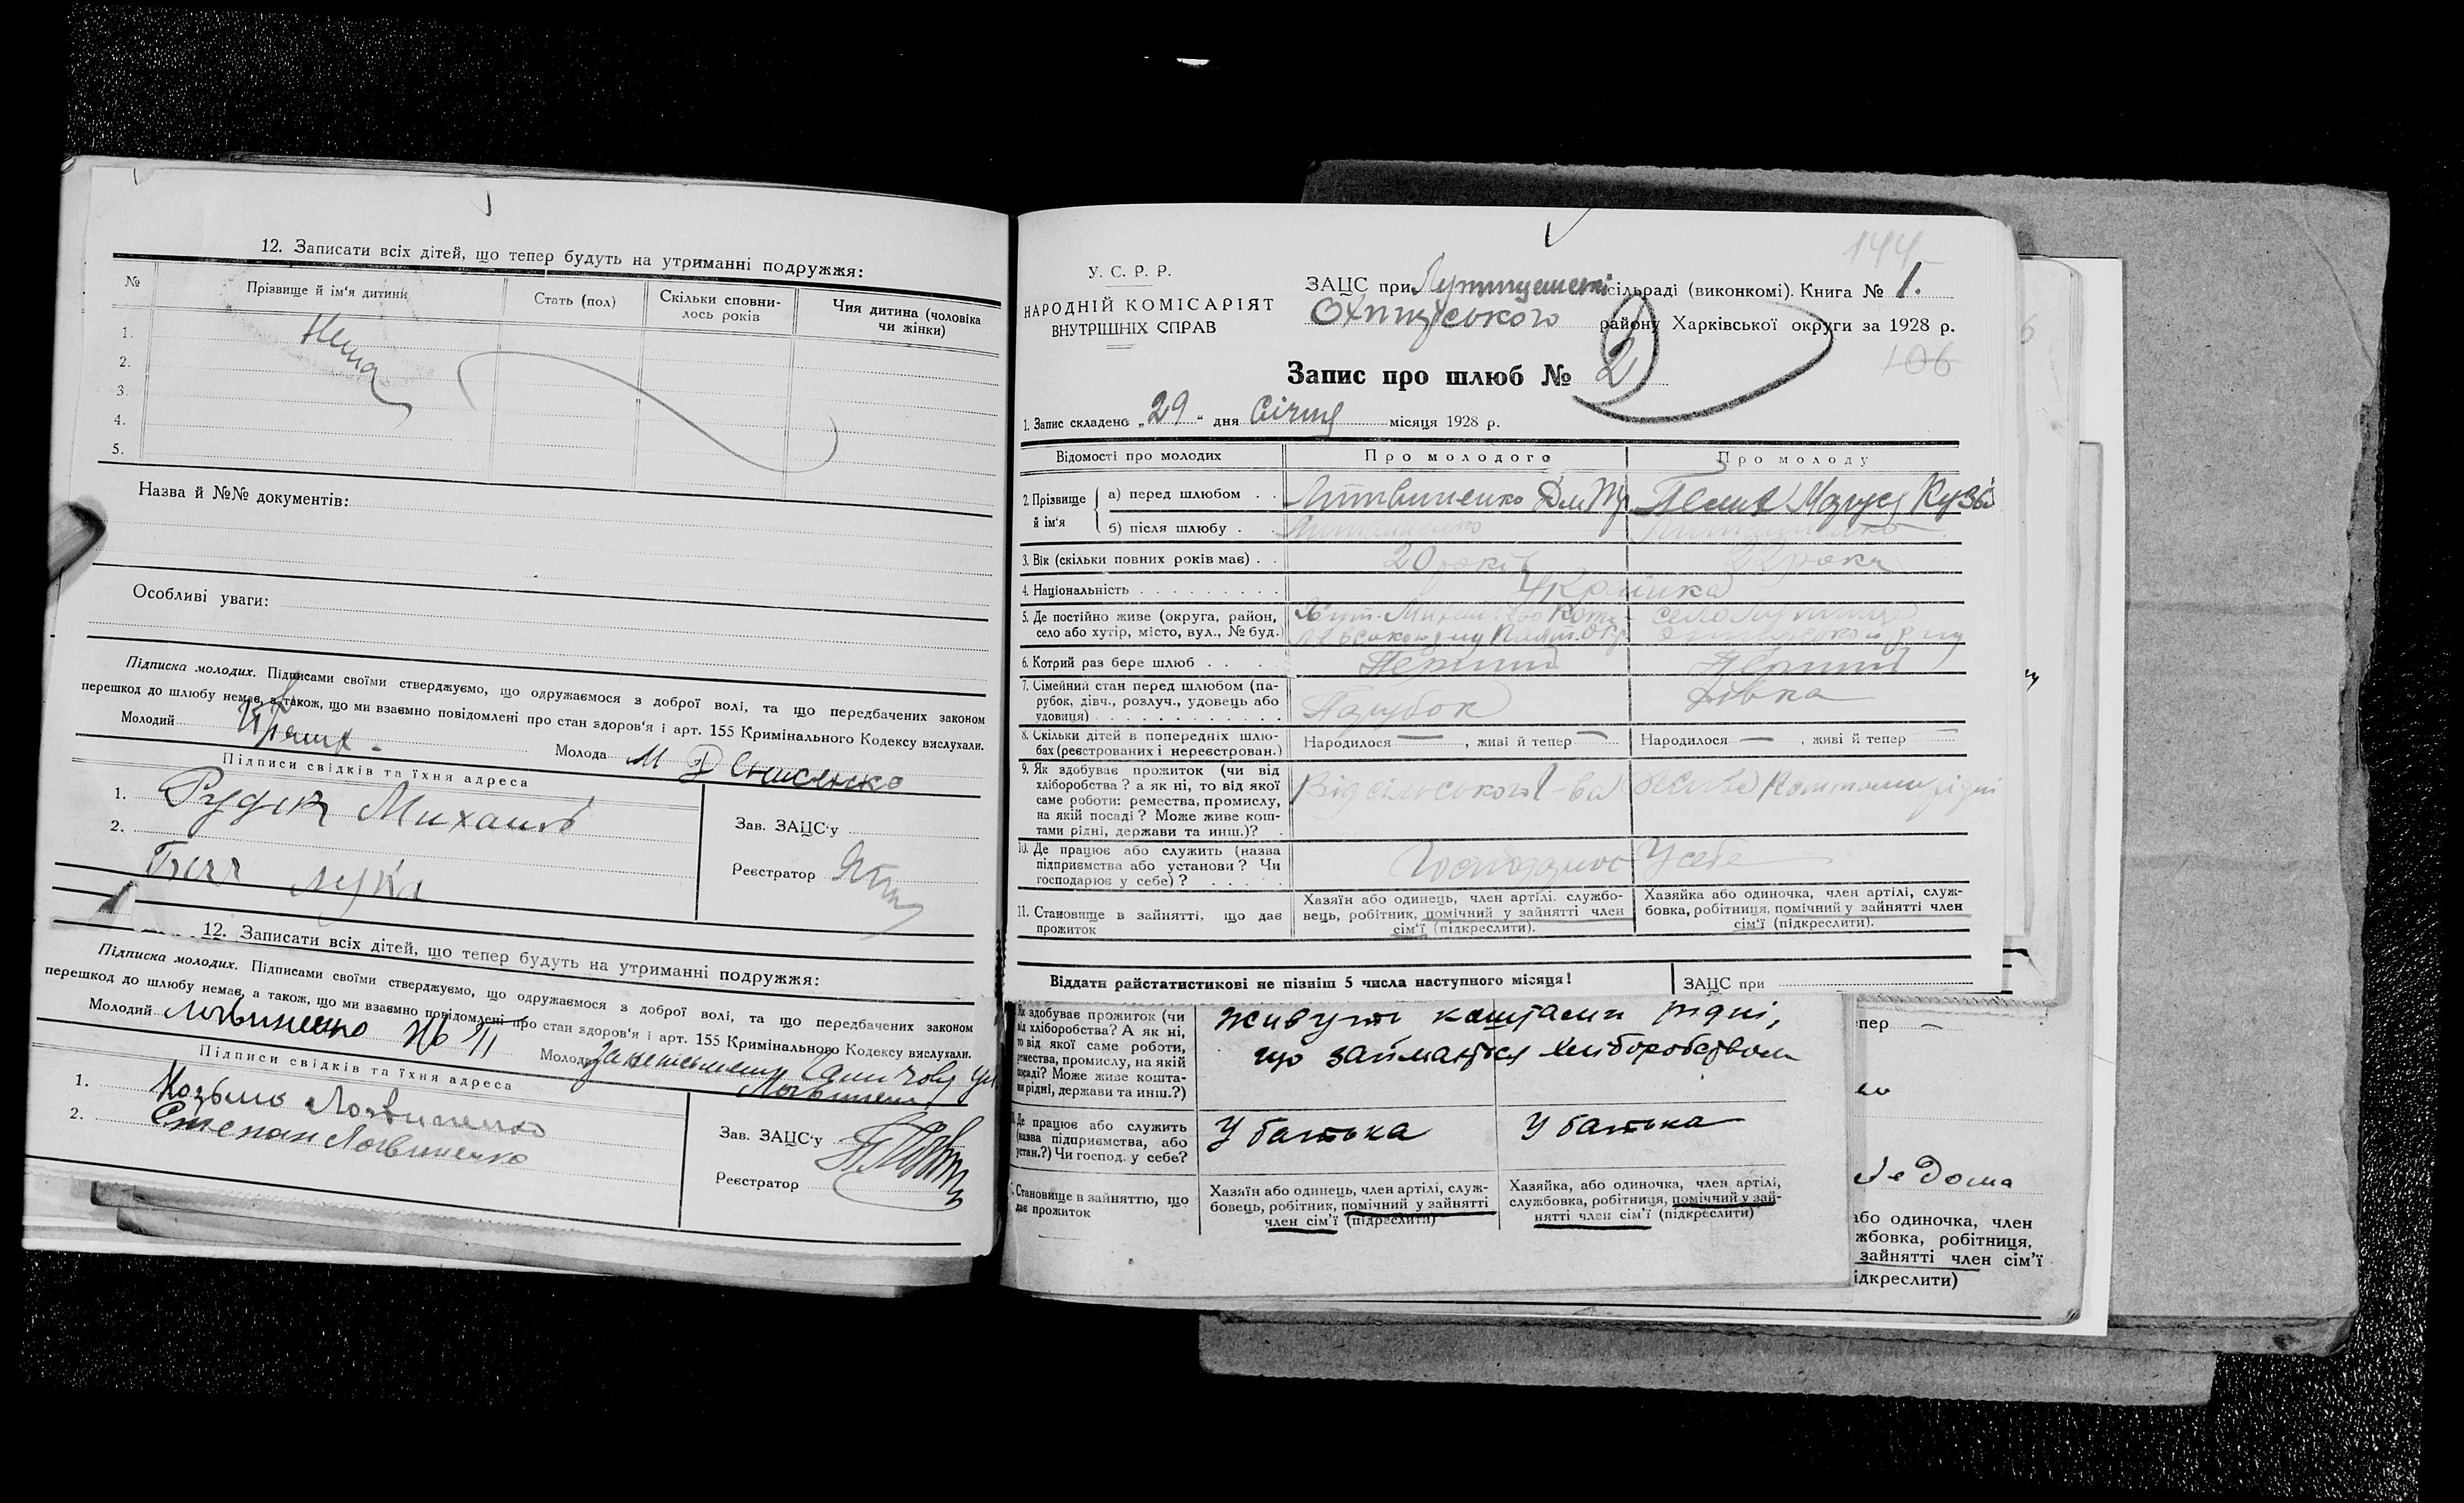 12. Записати всіх дітей, що тепер будуть на утриманні подружжя:
№ Прізвище й ім'я дитини Стать (пол) Скільки сповнилось років Чия дитина (чоловіка чи жінки)
1. Нема
2.
3.
4.
5.
Назва й №№ документів:
Особливі уваги:
Підписка молодих. Підписами своїми стверджуємо, що одружаємося з доброї волі, та що передбачених законом
перешкод до шлюбу немає, а також, що ми взаємно повідомлені про стан здоров'я і арт. 155 Кримінального Кодексу вислухали.
Молодий Молода М Денисенко
Підписи свідків та їхня адреса
1. Рудік Михаил
2. лука
Зав. ЗАЦС'у
Реєстратор
12. Записати всіх дітей, що тепер будуть на утриманні подружжя:
Підписка молодих. Підписами своїми стверджуємо, що одружаємося з доброї волі, та що передбачених законом
перешкод до шлюбу немає, а також, що ми взаємно повідомлені про стан здоров'я і арт. 155 Кримінального Кодексу вислухали.
Молодий Логвиненко Молода
Підписи свідків та їхня адреса
1. Козьма Логвиненко
2. Степан Логвиненко
Зав. ЗАЦС'у
Реєстратор
144
У. С. Р. Р.
НАРОДНІЙ КОМІСАРІЯТ
ВНУТРІШНІХ СПРАВ
ЗАЦС при сільраді (виконкомі). Книга № 1.
району Харківської округи за 1928 р.
106
Запис про шлюб № 2
1. Запис складено „29“ дня Січня місяця 1928 р.
Відомості про молодих Про молодого Про молоду
2. Прізвище й ім'я
а) перед шлюбом . . Литвиненко
б) після шлюбу . . Литвиненко
3. Вік (скільки повних років має) . . 20 років 22 роки
4. Національність Українка
5. Де постійно живе (округа, район,
село або хутір, місто, вул., № буд.)
6. Котрий раз бере шлюб . . . Перший Перший
7. Сімейний стан перед шлюбом (па-
рубок, дівч., розлуч., удовець або
удовиця) Парубок дівка
8. Скільки дітей в попередніх шлю-
бах (реєстрованих і нереєстрован.) Народилося — , живі й тепер — Народилося — , живі й тепер —
9. Як здобуває прожиток (чи від
хліборобства? а як ні, то від якої
саме роботи: ремества, промислу,
на якій посаді? Може живе кош-
тами рідні, держави та инш.)?
Від сільського г-ва Коштами рідні
10. Де працює або служить (назва
підприємства або установи? Чи
господарює у себе)? У себе
11. Становище в зайнятті, що дає
прожиток
Хазяїн або одинець, член артілі, службо-
вець, робітник, помічний у зайнятті член
сім'ї (підкреслити).
Хазяйка або одиночка, член артілі, служ-
бовка, робітниця, помічний у зайнятті член
сім'ї (підкреслити).
Віддати райстатистикові не пізніш 5 числа наступного місяця! ЗАЦС при
Як здобуває прожиток (чи
від хліборобства? А як ні,
то від якої саме роботи,
ремества, промислу, на якій
посаді? Може живе кошта-
ми рідні, держави та инш.?)
живуть коштами рідні,
що займається хліборобством
Де працює або служить
(назва підприємства, або
устан.?) Чи господ. у себе?
У батька У батька
Становище в зайняттю, що
дає прожиток
Хазяїн або одинець, член артілі, служ-
бовець, робітник, помічний у зайнятті
член сім'ї (підреслити)
Хазяйка, або одиночка, член артілі,
службовка, робітниця, помічний у зай-
нятті член сім'ї (підкреслити)
пер —
Дома
або одиночка, член
жбовка, робітниця,
зайнятті член сім'ї
ідкреслити)